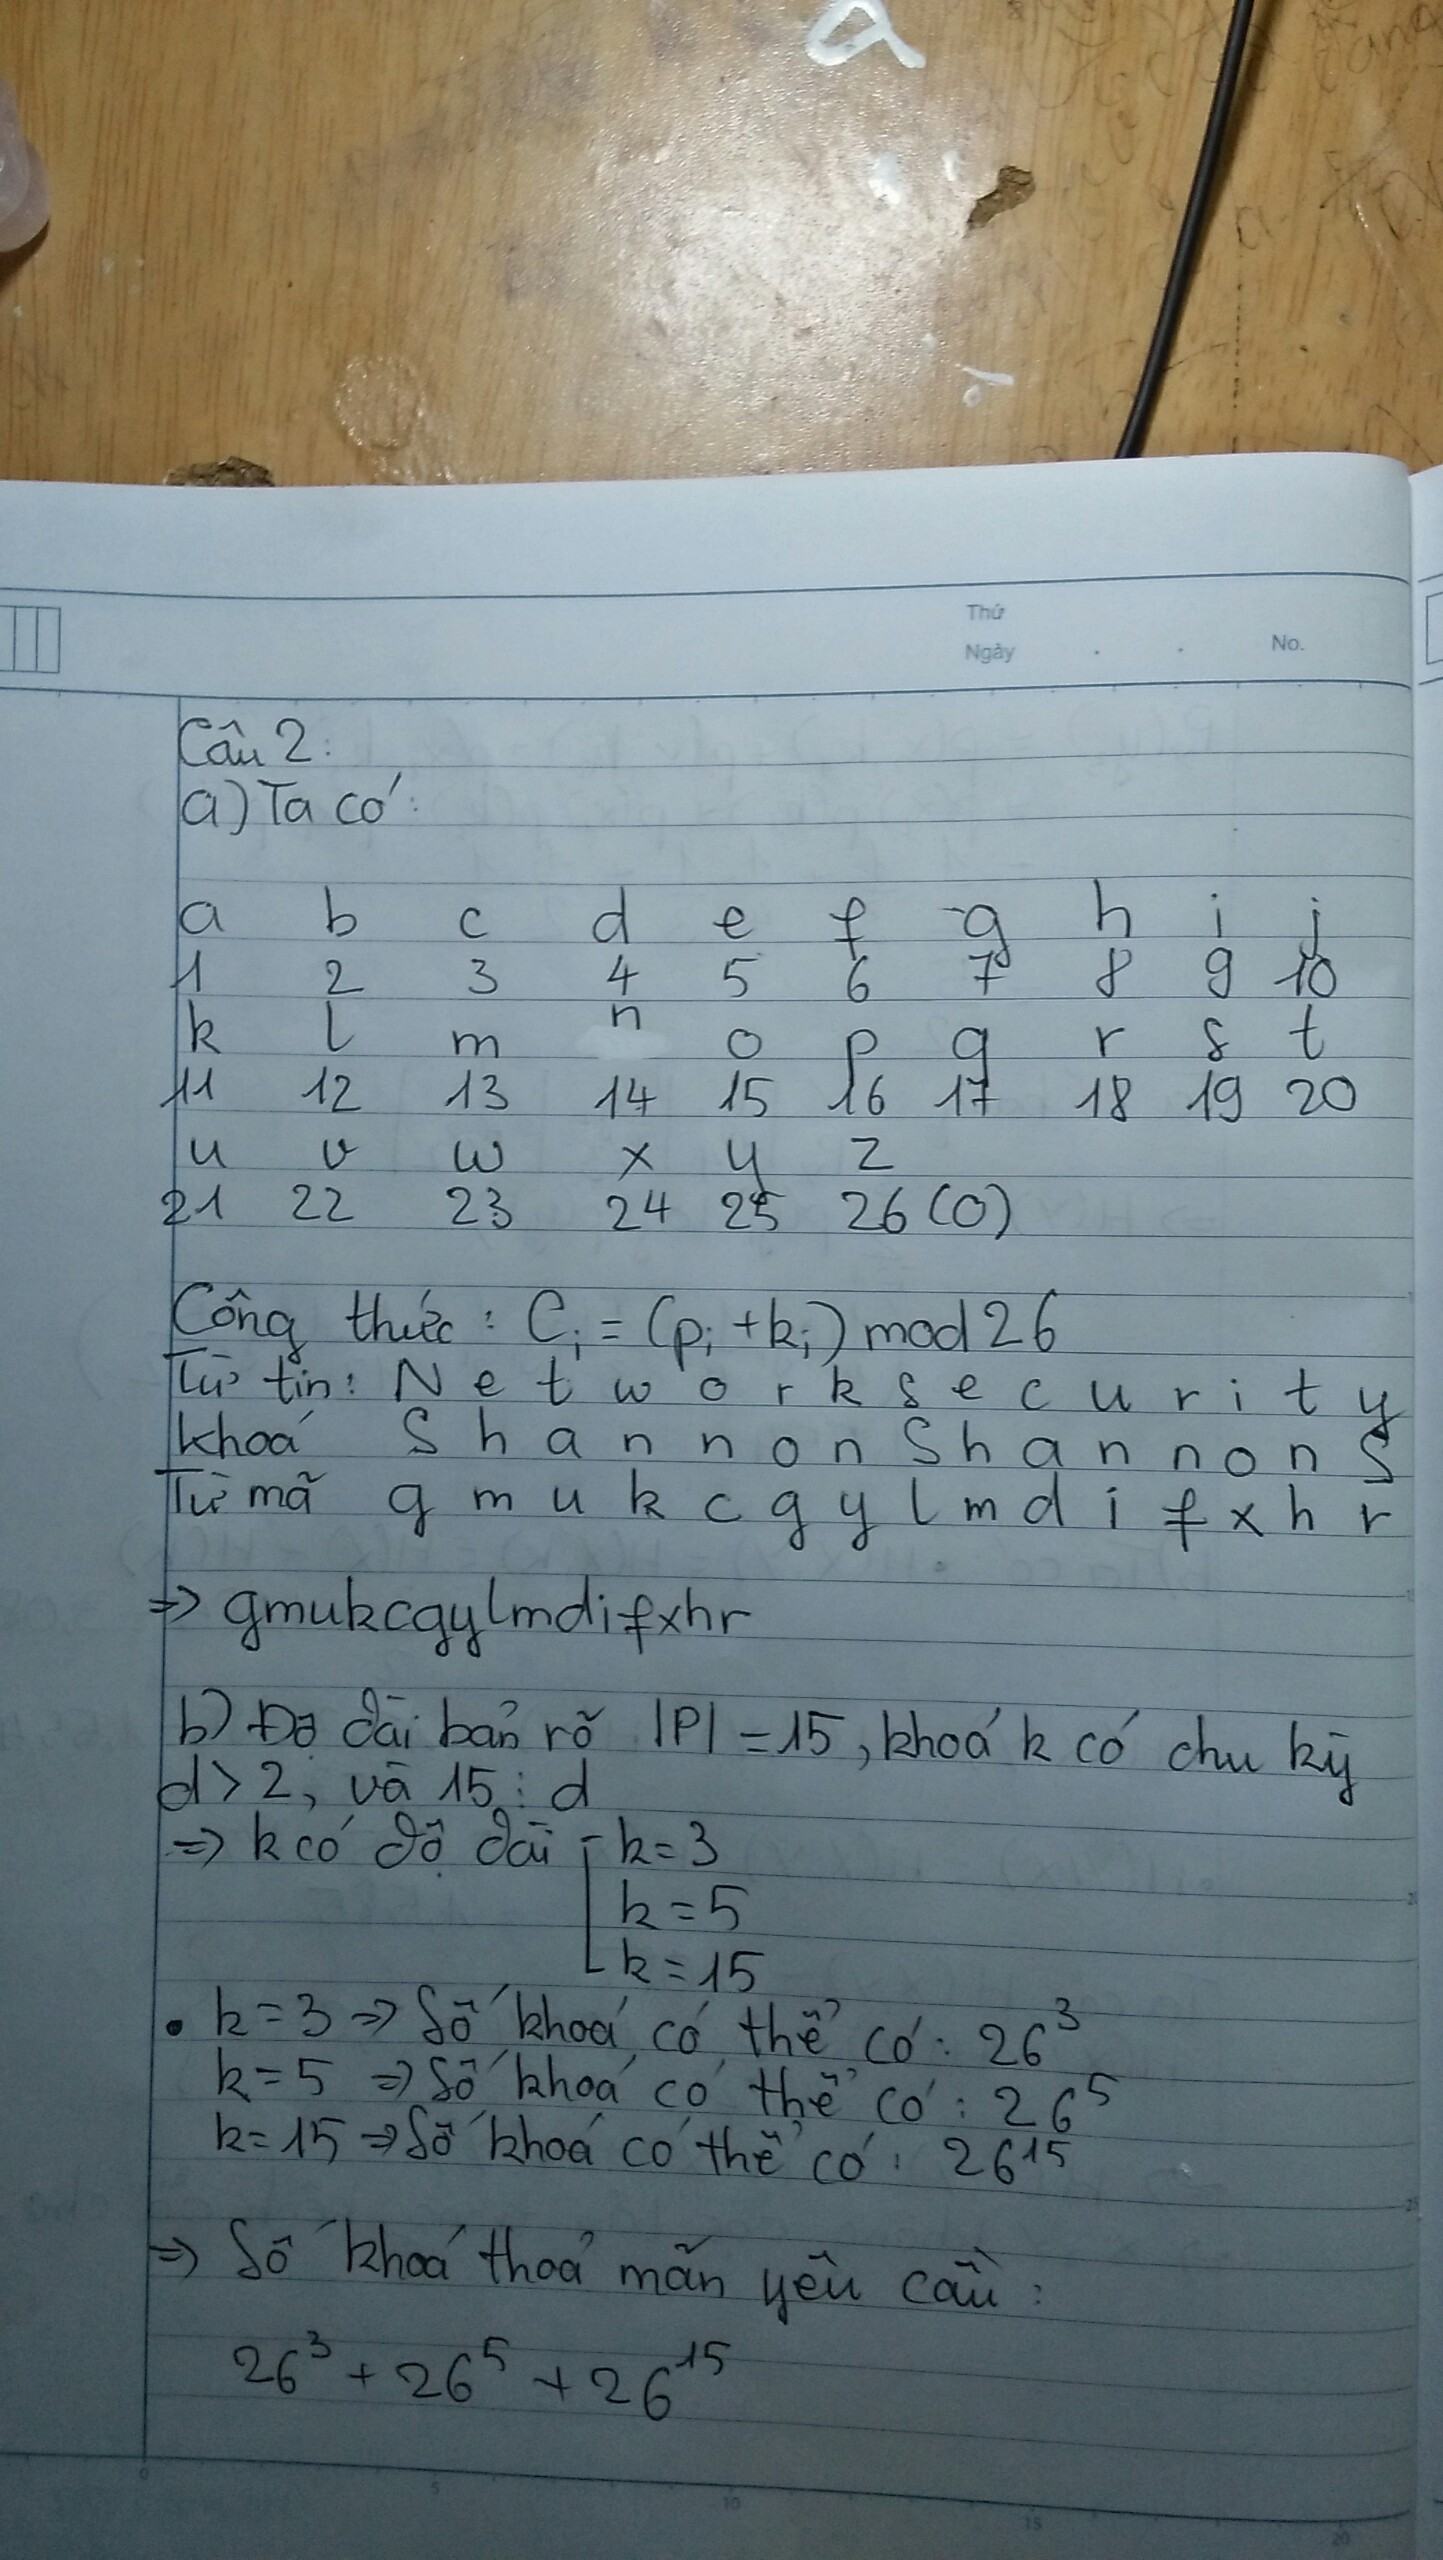 a
Thứ
Ngày . . No.
Câu 2:
a) Ta có:
a b c d e f g h i j
1 2 3 4 5 6 7 8 9 10
k l m n o p q r s t
11 12 13 14 15 16 17 18 19 20
u v w x y z
21 22 23 24 25 26 (0)
Công thức: Ci = (pi + ki) mod 26
Từ tin: N e t w o r k s e c u r i t y
khoá S h a n n o n S h a n n o n S
Từ mã g m u k c g y l m d i f x h r
=> gmukcgylmdifxhr
b) Độ dài bản rõ |P| = 15, khoá k có chu kỳ
d > 2, và 15 ⋮ d
=> k có độ dài [ k = 3
k = 5
k = 15
• k = 3 => Số khoá có thể có: 26³
k = 5 => Số khoá có thể có: 26⁵
k = 15 => Số khoá có thể có: 26¹⁵
=> Số khoá thoả mãn yêu cầu:
26³ + 26⁵ + 26¹⁵
0 5 10 15 20